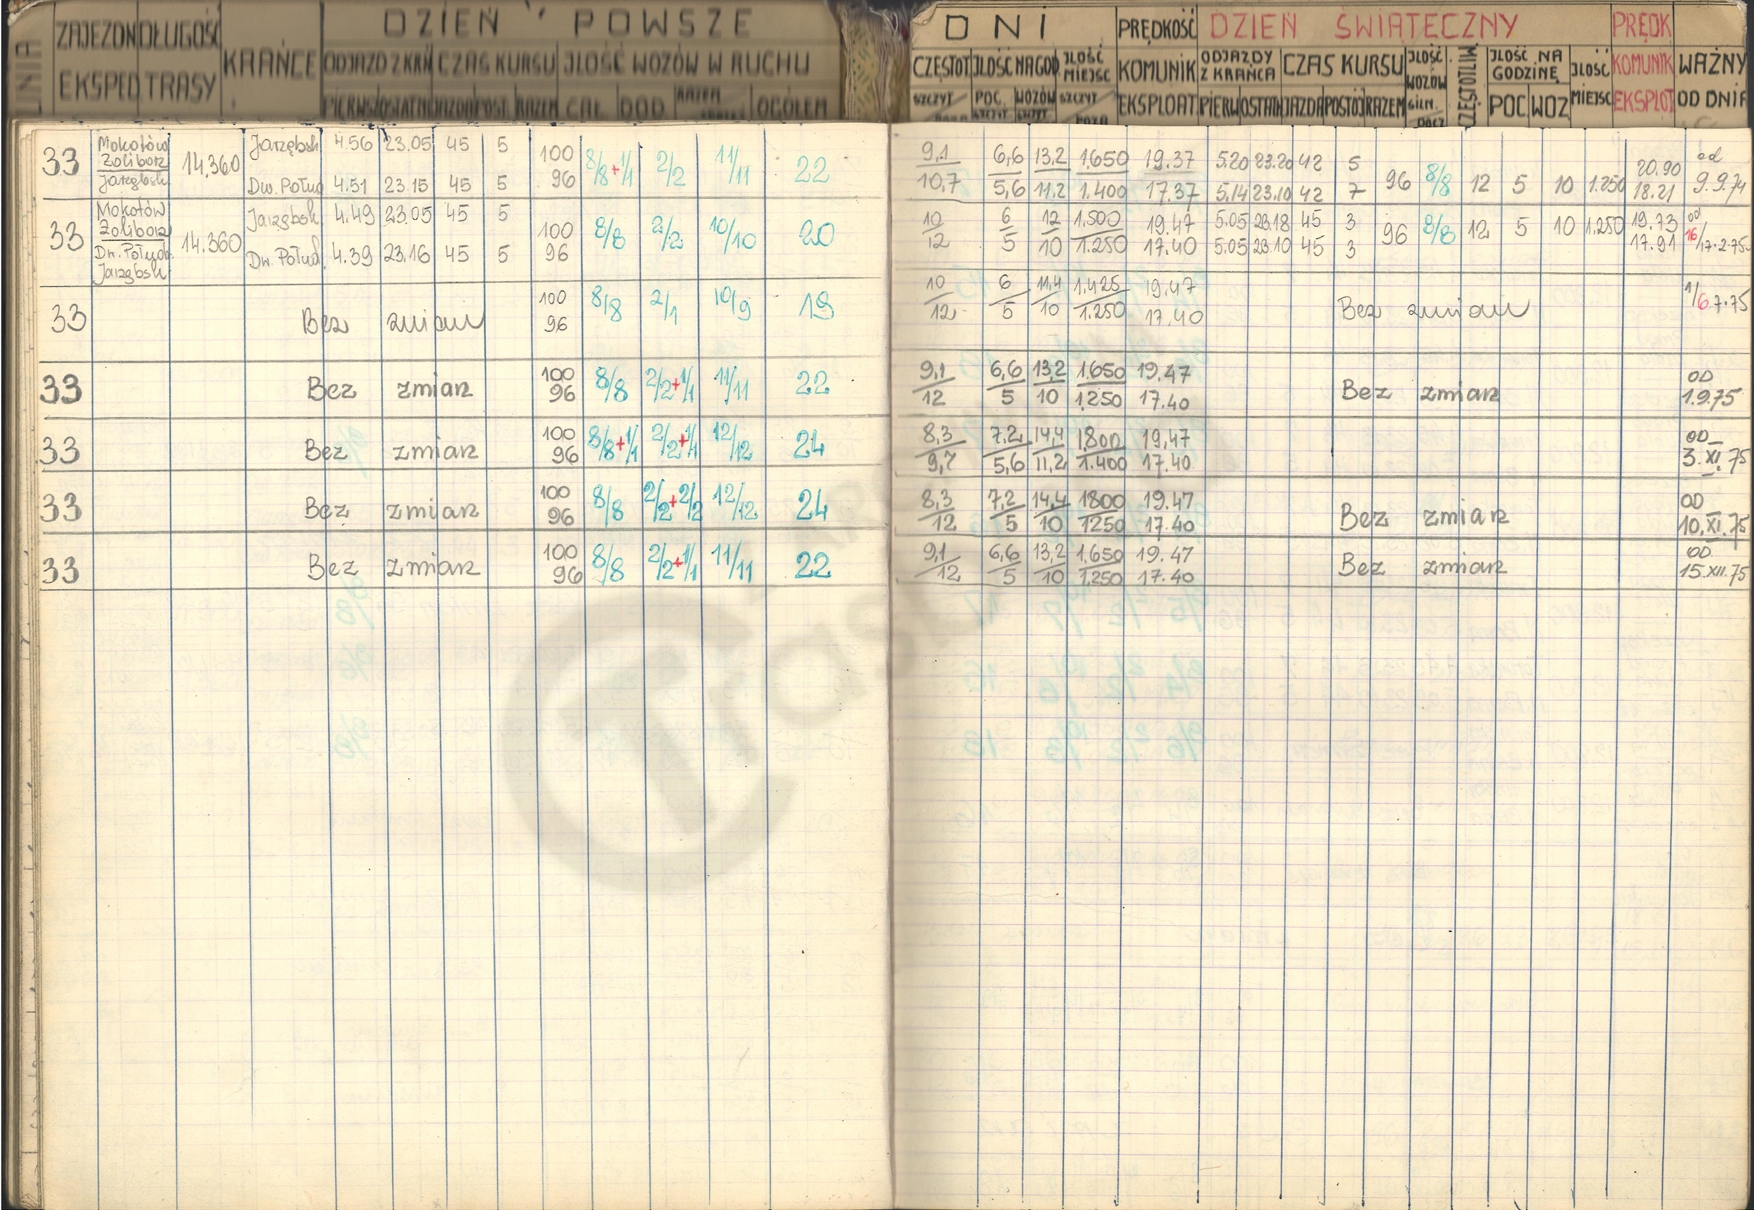 LINIA ZAJEZDN DŁUGOŚĆ KRAŃCE DZIEŃ POWSZE
EKSPED TRASY ODJAZD Z KRAŃ CZAS KURSU JLOŚĆ WOZÓW W RUCHU
PIERWSZ OSTATN JAZDA POST. RAZEM CAŁ. DOD. RAZEM OGÓŁEM
DNI PRĘDKOŚĆ DZIEŃ ŚWIĄTECZNY PRĘDK
CZĘSTOT JLOŚĆ NA GOD JLOŚĆ MIEJSC KOMUNIK ODJAZDY Z KRAŃCA CZAS KURSU JLOŚĆ WOZÓW JLOŚĆ NA GODZINĘ JLOŚĆ MIEJSC KOMUNIK WAŻNY
SZCZYT POC. WOZÓW SZCZYT EKSPLOAT PIERW OSTATN JAZDA POSTÓJ RAZEM POC WOZ EKSPLOT OD DNIA
33 Mokotów Żoliborz Jarzębsk 14.360 Jarzębsk 4.56 23.05 45 5 100 8/8+1/1 2/2 11/11 22 9,1 6,6 13,2 1.650 19.37 5.20 23.20 42 5 96 8/8 12 5 10 1.250 20.90 od
Dw. Połud 4.51 23.15 45 5 96 10,7 5,6 11,2 1.400 17.37 5.14 23.10 42 7 18.21 9.9.74
33 Mokotów Żoliborz Dw. Połudn Jarzębsk 14.360 Jarzębsk. 4.49 23.05 45 5 100 8/8 2/2 10/10 20 10 6 12 1.500 19.47 5.05 23.18 45 3 96 8/8 12 5 10 1.250 19.73 od
Dw. Połud. 4.39 23.16 45 5 96 12 5 10 1.250 17.40 5.05 23.10 45 3 17.91 16/17.2.75
33 Bez zmian 100 8/8 2/1 10/9 19 10 6 11,4 1.425 19,47 Bez zmian 1/6.7.75
96 12 5 10 1.250 17.40
33 Bez zmian 100 8/8 2/2+1/1 11/11 22 9,1 6,6 13,2 1.650 19.47 Bez zmian OD
96 12 5 10 1.250 17.40 1.9.75
33 Bez zmian 100 8/8+1/1 2/2+1/1 12/12 24 8,3 7,2 14,4 1.800 19,47 OD
96 9,7 5,6 11,2 1.400 17.40 3.XI.75
33 Bez zmian 100 8/8 2/2+2/2 12/12 24 8,3 7,2 14,4 1800 19.47 Bez zmian OD
96 12 5 10 1250 17.40 10.XI.75
33 Bez zmian 100 8/8 2/2+1/1 11/11 22 9,1 6,6 13,2 1.650 19.47 Bez zmian OD
96 12 5 10 1.250 17.40 15.XII.75